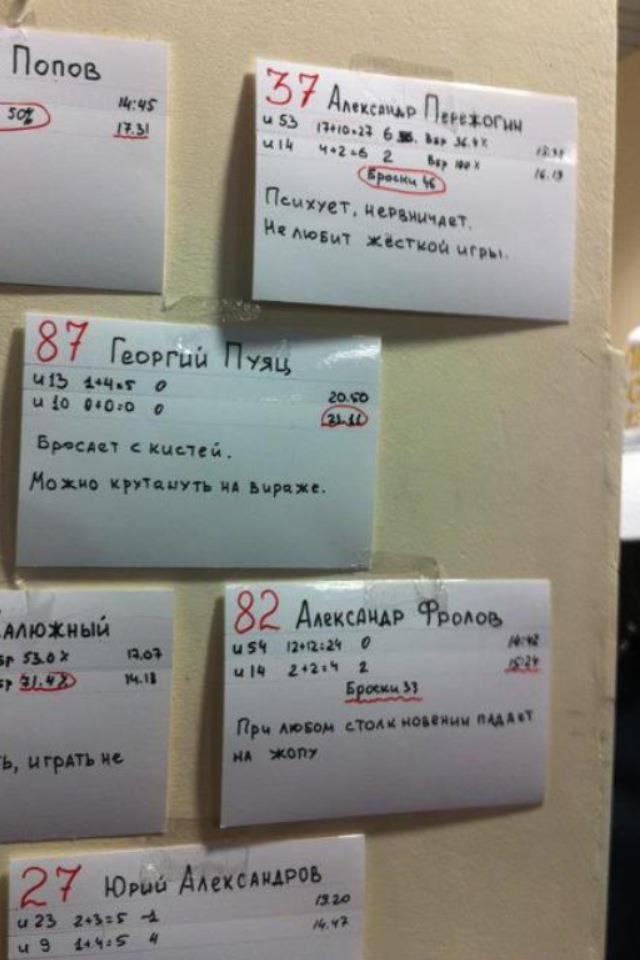 Попов
14:45
50%
17.31
37 Александр Пережогин
и 53 17+10=27 6 Вбр 36.4%
и 14 4+2=6 2 Вбр 100% 16.19
Броски 46
Психует, нервничает.
Не любит жёсткой игры.
87 Георгий Пуяц
и 13 1+4=5 0 20.50
и 10 0+0=0 0 21.11
Бросает с кистей.
Можно крутануть на вираже.
алюжный
бр 53.0% 17.07
бр 71.4% 14.18
ь, играть не
82 Александр Фролов
и 54 12+12=24 0 14:42
и 14 2+2=4 2 15:24
Броски 33
При любом столкновении падает
на жопу
27 Юрий Александров
и 23 2+3=5 -1 13.20
и 9 1+4=5 4 14.47